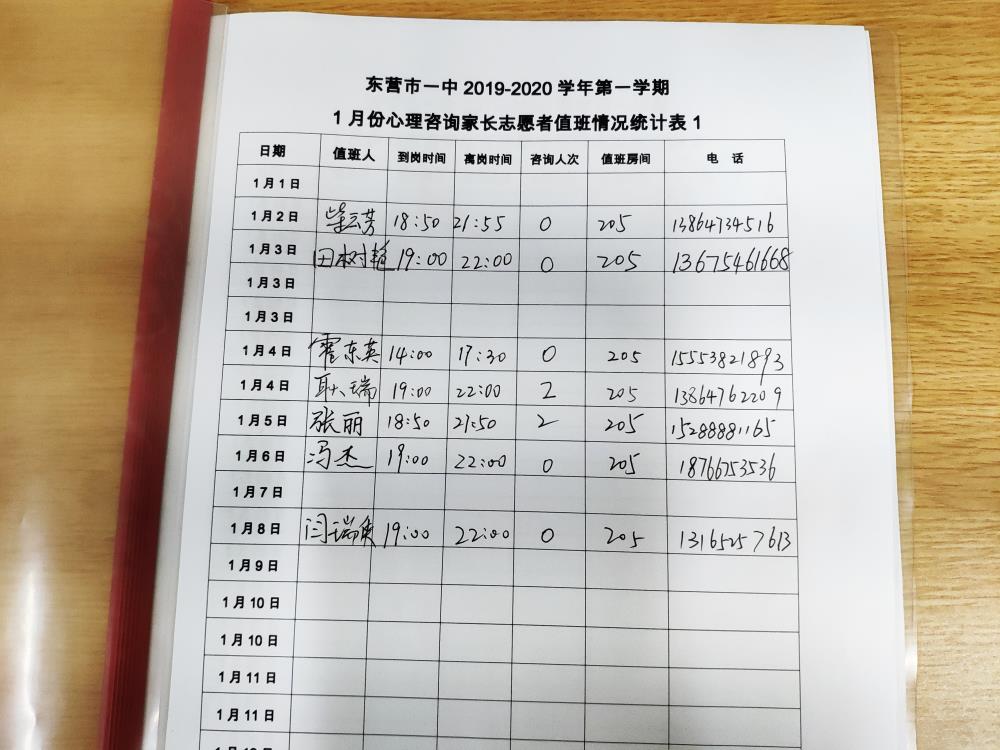 东营市一中 2019-2020 学年第一学期
1 月份心理咨询家长志愿者值班情况统计表 1
日期 值班人 到岗时间 离岗时间 咨询人次 值班房间 电 话
1 月 1 日
1 月 2 日 柴云芳 18:50 21:55 0 205 13864734516
1 月 3 日 田树艳 19:00 22:00 0 205 13675461668
1 月 3 日
1 月 3 日
1 月 4 日 霍东英 14:00 17:30 0 205 15553821893
1 月 4 日 耿瑞 19:00 22:00 2 205 13864762209
1 月 5 日 张丽 18:50 21:50 2 205 15288881165
1 月 6 日 冯杰 19:00 22:00 0 205 18766753536
1 月 7 日
1 月 8 日 闫瑞 19:00 22:00 0 205 13165257613
1 月 9 日
1 月 10 日
1 月 10 日
1 月 11 日
1 月 11 日